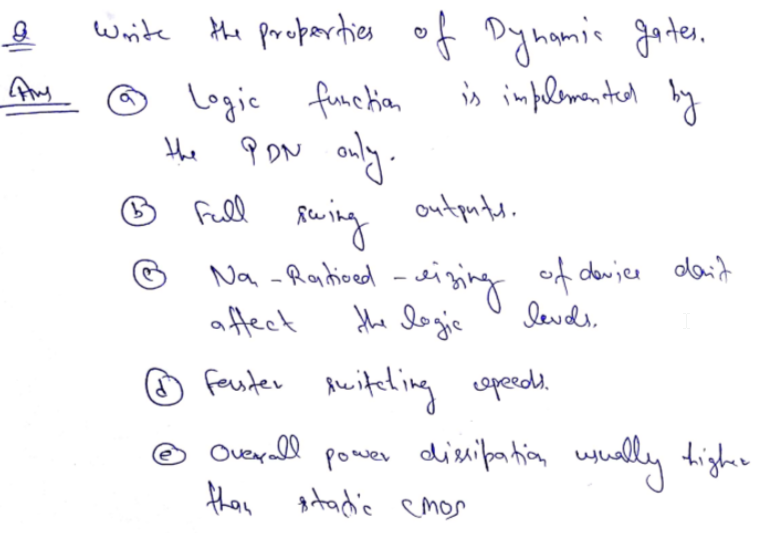 Q Write the properties of Dynamic gates.
Ans (a) Logic function is implemented by
the PDN only.
(b) Full swing outputs.
(c) Non-Ratioed - sizing of device don't
affect the logic levels.
(d) Faster switching speeds.
(e) Overall power dissipation usually higher
than static CMOS